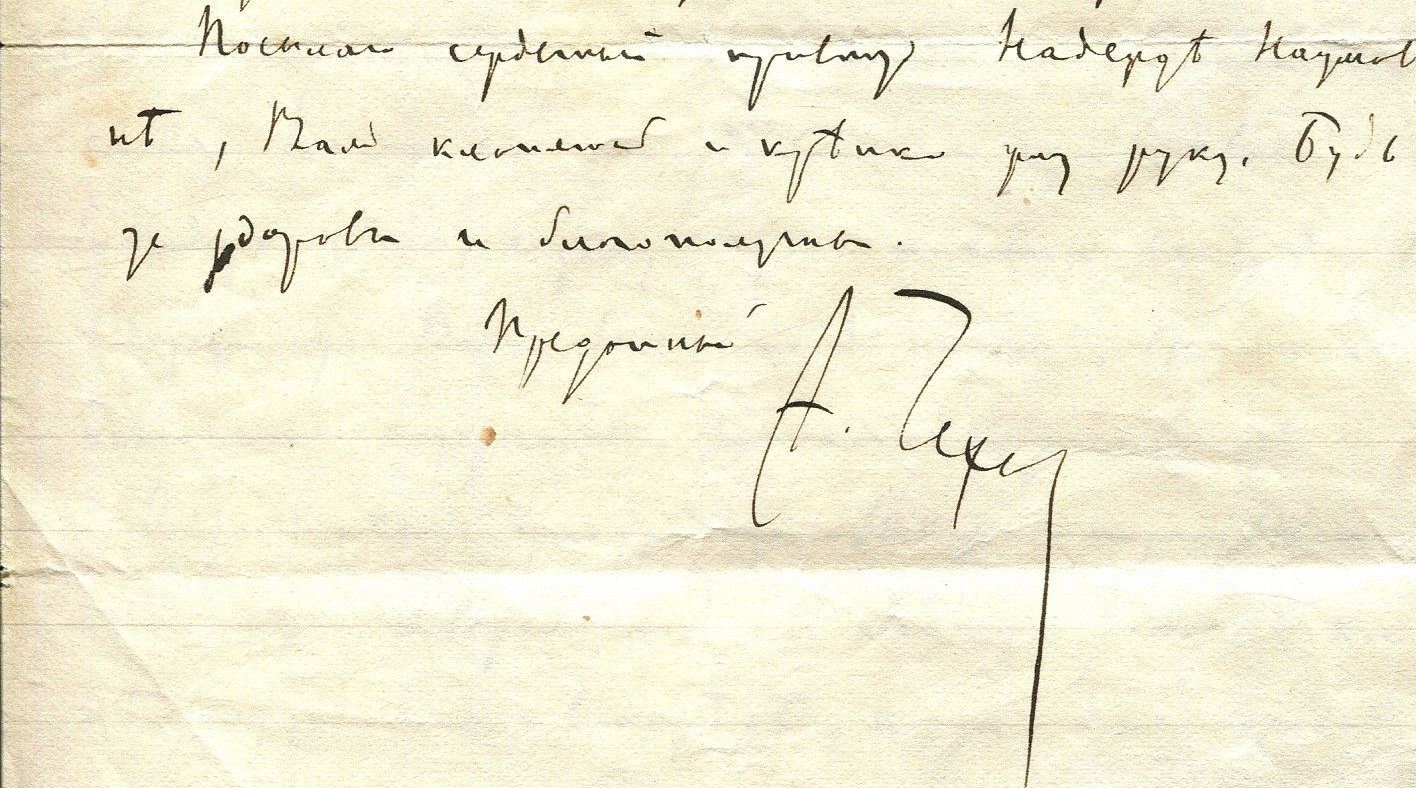 Посылаю сердечный привет Надежде Наумов
нѣ, Вам кланяюсь и крѣпко жму руку. Будь
те здоровы и благополучны.
Преданный А. Чехов